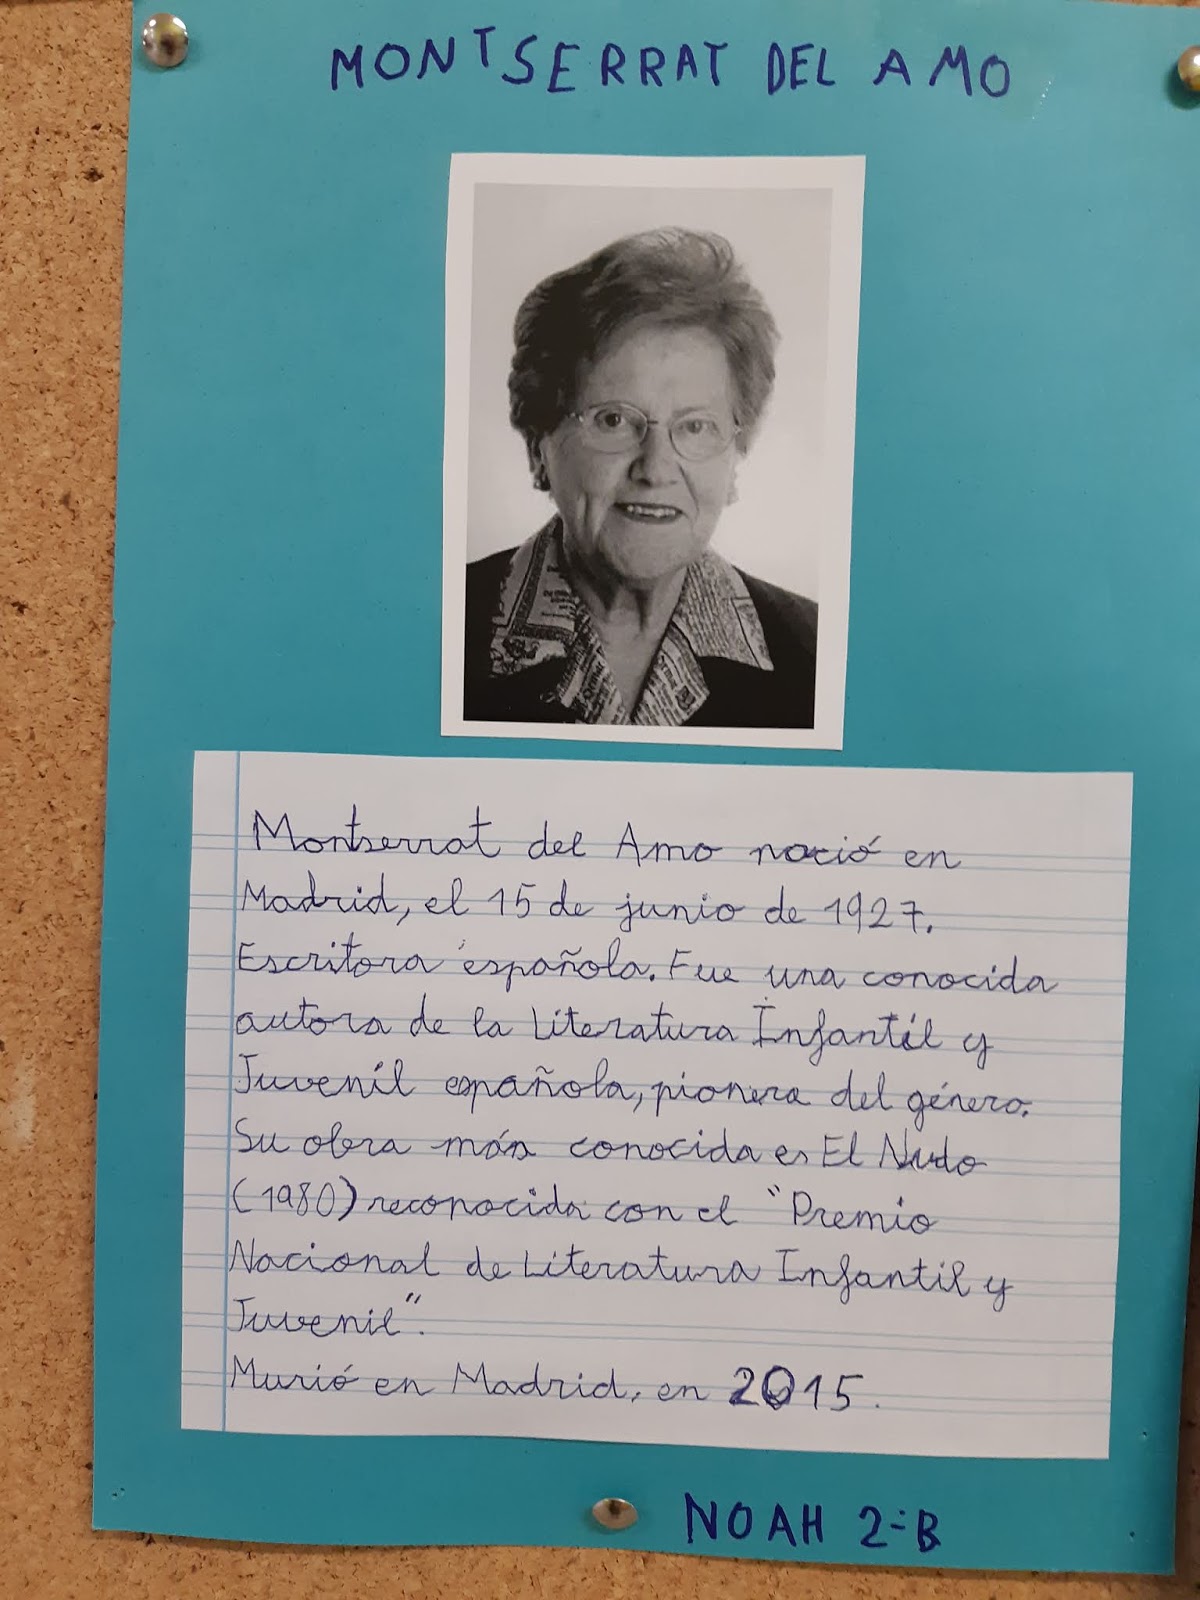 MONTSERRAT DEL AMO
Montserrat del Amo nació en
Madrid, el 15 de junio de 1927.
Escritora española. Fue una conocida
autora de la Literatura Infantil y
Juvenil española, pionera del género.
Su obra más conocida es El Nudo
(1980) reconocida con el "Premio
Nacional de Literatura Infantil y
Juvenil".
Murió en Madrid, en 2015.
NOAH 2ºB